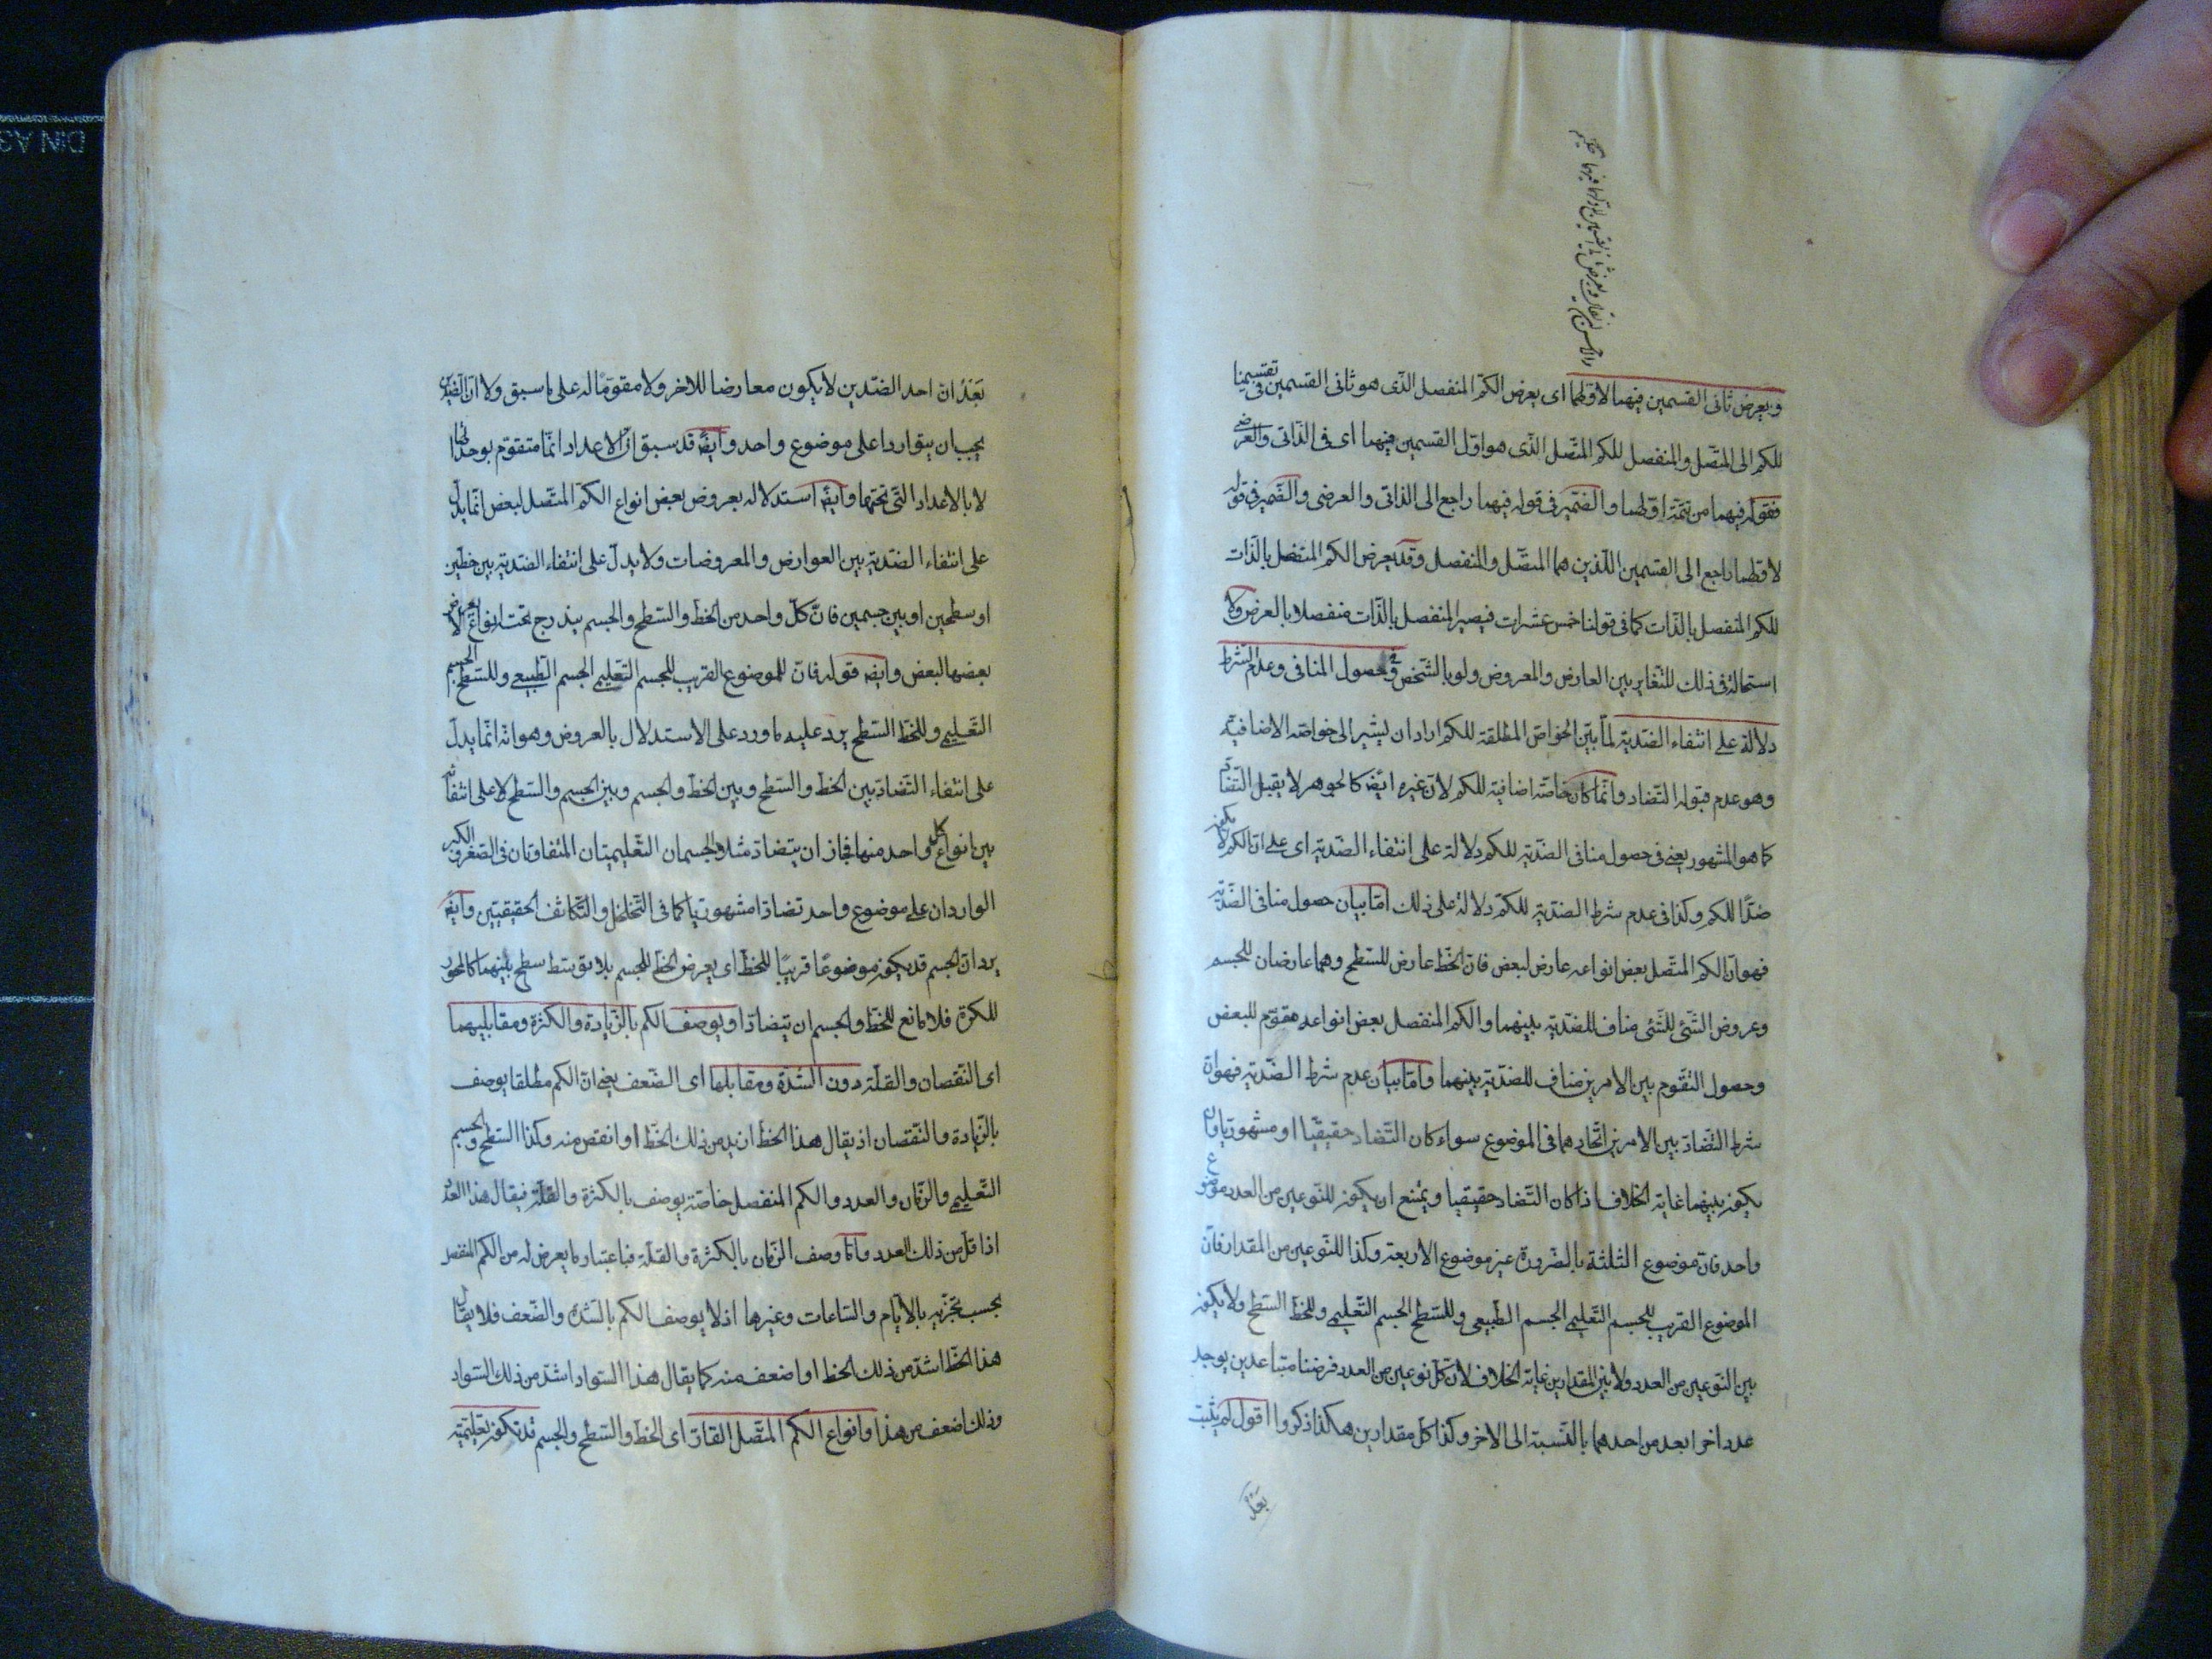 ويعرض ثانى القسمين فيهما لاولهما اى يعرض الكم المنفصل الذى هو ثانى القسمين فى تقسيمنا
للكم الى المتصل والمنفصل للكم المتصل الذى هو اول القسمين فيهما اى فى الذاتى والعرضى
فقوله فيهما من تتمة اولهما والضمير فى قوله فيهما راجع الى الذاتى والعرضى والضمير فى قوله
لاولهما راجع الى القسمين اللذين هما المتصل والمنفصل وقد يعرض الكم المنفصل بالذات
للكم المنفصل بالذات كما فى قولنا خمس عشرات فيصير المنفصل بالذات منفصلا بالعرض ولا
استحالة فى ذلك للتغاير بين العارض والمعروض ولو بالشخص وفى حصول المنافى وعدم الشرط
دلالة على انتفاء الضدية لما بين الخواص المطلقة للكم اراد ان يشير الى خواصه الاضافية
وهو عدم قبوله التضاد وانما كان خاصة اضافية للكم لان غيره ايضا كالجوهر لا يقبل التضاد
كما هو المشهور يعنى فى حصول منافى الضدية للكم دلالة على انتفاء الضدية اى على ان الكم لا يكون
ضدا للكم وكذا فى عدم شرط الضدية للكم دلالة على ذلك اما بيان حصول منافى الضدية
فهو ان الكم المتصل بعض انواعه عارض لبعض فان الخط عارض للسطح وهما عارضان للجسم
وعروض الشئ للشئ مناف للضدية بينهما والكم المنفصل بعض انواعه مقوم للبعض
وحصول التقوم بين الامرين مناف للضدية بينهما واما بيان عدم شرط الضدية فهو ان
شرط التضاد بين الامرين اتحادهما فى الموضوع سواء كان التضاد حقيقيا او مشهوريا وان
يكون بينهما غاية الخلاف اذا كان التضاد حقيقيا ويمتنع ان يكون للنوعين من العدد موضوع
واحد فان موضوع الثلثة بالضرورة غير موضوع الاربعة وكذا للنوعين من المقدار فان
الموضوع القريب للجسم التعليمى الجسم الطبيعى وللسطح الجسم التعليمى وللخط السطح ولا يكون
بين النوعين من العدد ولا بين المقدارين غاية الخلاف لان كل نوعين من العدد فرضنا متباعدين يوجد
عدد اخر ابعد من احدهما بالنسبة الى الاخر وكذا كل مقدارين هكذا ذكروا اقول لم يثبت
بعد
بعد ان احد الضدين لا يكون معارضا للاخر ولا مقوما له على ما سبق ولا ان الضدين
يجب ان يتواردا على موضوع واحد وايضا قد سبق ان الاعداد انما متقوم بوحداتها
لا بالاعداد التى تحتها وايضا استدلاله بعروض بعض انواع الكم المتصل لبعض انما يدل
على انتفاء الضدية بين العوارض والمعروضات ولا يدل على انتفاء الضدية بين خطين
او سطحين او بين جسمين فان كل واحد من الخط والسطح والجسم يندرج تحت انواع لا يعرض
بعضها لبعض وايضا قوله فان للموضوع القريب للجسم التعليمى الجسم الطبيعى وللسطح الجسم
التعليمى وللخط السطح يرد عليه ما ورد على الاستدلال بالعروض وهو انه انما يدل
على انتفاء التضاد بين الخط والسطح وبين الخط والجسم وبين الجسم والسطح لا على انتفائه
بين انواع كل واحد منها فجاز ان يتضاد مثلا الجسمان التعليميان المتفاوتان فى الصغر والكبر
الواردان على موضوع واحد تضادا مشهوريا كما فى التخلخل والتكاثف الحقيقيين وايضا
يرد ان الجسم قد يكون موضوعا قريبا للخط اى يعرض الخط للجسم بلا توسط سطح بينهما كالمحور
للكرة فلا مانع للخط والجسم ان يتضادا ويوصف الكم بالزيادة والكثرة ومقابليهما
اى النقصان والقلة دون الشدة ومقابلها اى الضعف يعنى ان الكم مطلقا يوصف
بالزيادة والنقصان اذ يقال هذا الخط ازيد من ذلك الخط او انقص منه وكذا السطح والجسم
التعليمى والزمان والعدد والكم المنفصل خاصة يوصف بالكثرة والقلة فيقال هذا العدد
اذا قل من ذلك العدد واما وصف الزمان بالكثرة والقلة فباعتبار ما يعرض له من الكم المنفصل
بحسب تجزيه بالايام والساعات وغيرها اذ لا يوصف الكم بالشدة والضعف فلا يقال
هذا الخط اشد من ذلك الخط او اضعف منه كما يقال هذا السواد اشد من ذلك السواد
وذلك اضعف من هذا وانواع الكم المتصل القار اى الخط والسطح والجسم قد تكون تعليمية